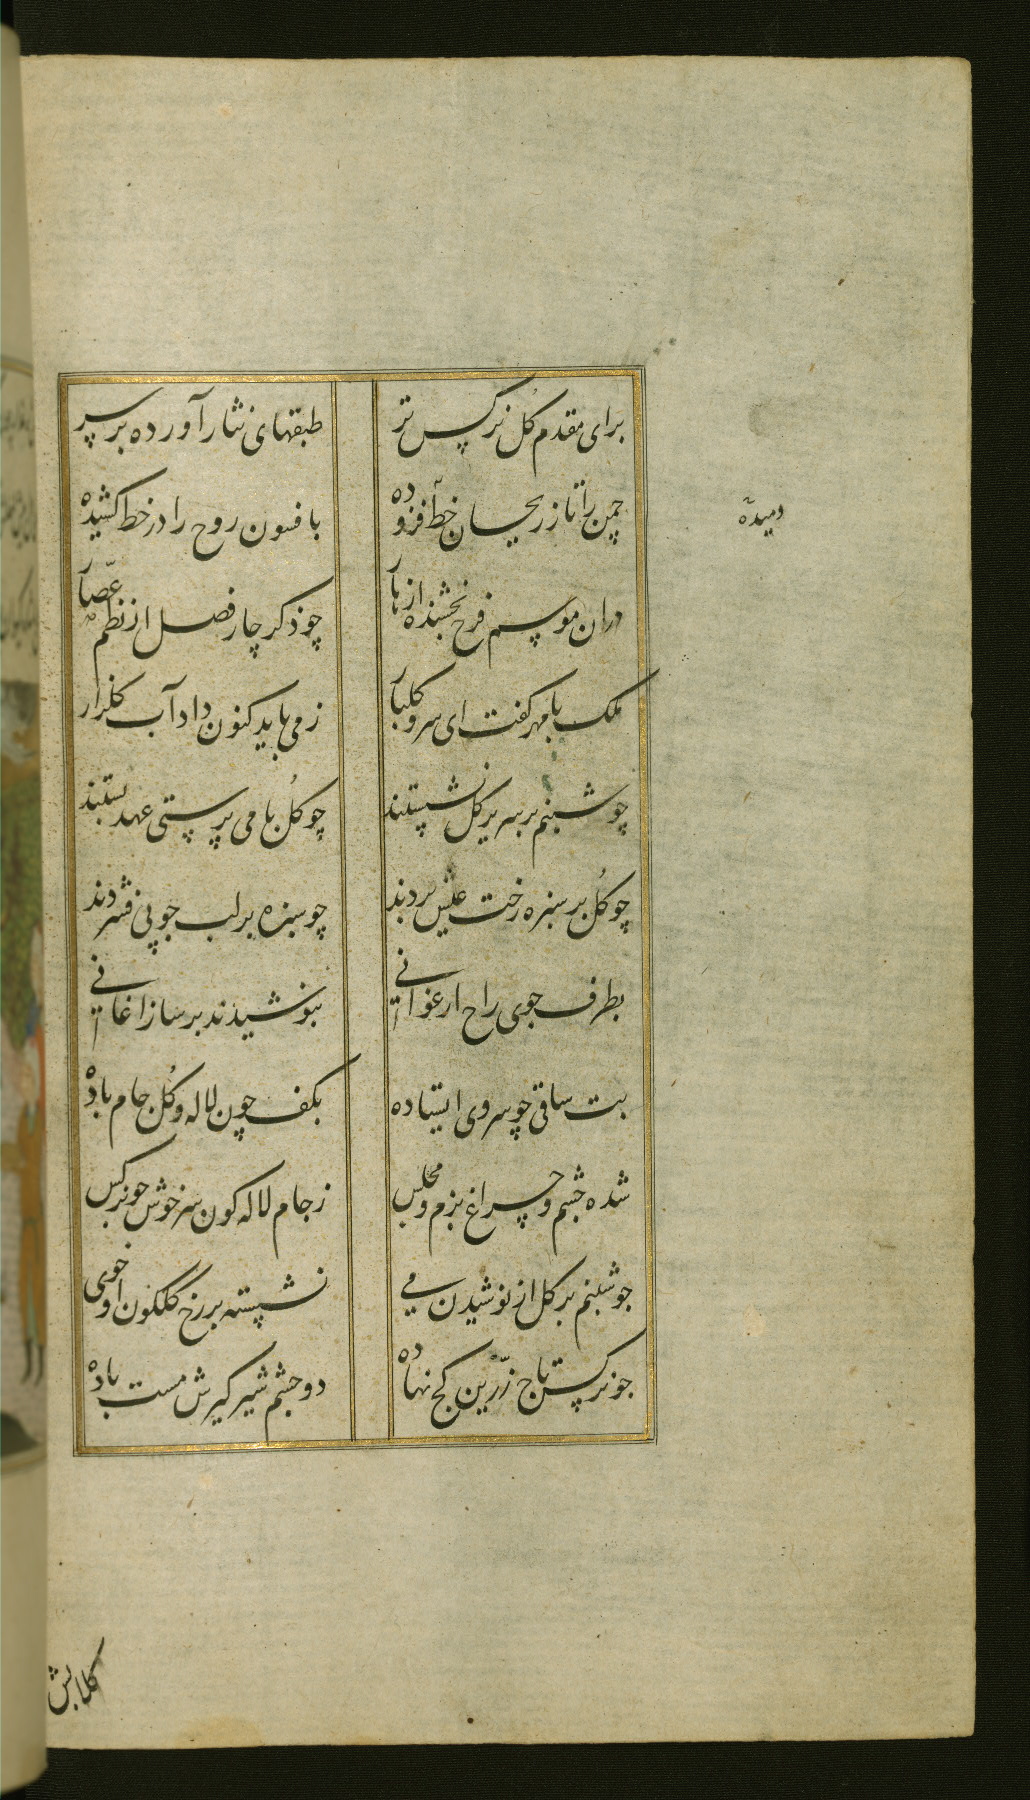 برای مقدم کُل نرکس تر طبقهای نثار آورده بر سر
چمن را تا ز ریحان خط فزوده با فسون روح را در خط کشیده
دمیده
دران موسم فرح بخشنده ازهار چو ذکر چار فصل از نظم عصّار
ملک با مهر کفت ای سرو کلبار ز می باید کنون داد آب کلزار
چو شبنم بر سریر کل نشستند چو کُل با می پرستی عهد بستند
چو کُل بر سبزه رخت عیش بردند چو سبزه بر لب جویی فشردند
بطرف جوی راح ارغوانی بنوشیدند بر ساز اغانی
بت ساقی چو سروی ایستاده بکف چون لاله و کُل جام باده
شده چشم و چراغ بزم و مجلس ز جام لاله کون سر خوش چو نرکس
چو شبنم بر کل از نوشیدن می نشسته بر رخ کلکون او خوی
چو نرکس تاج زرّین کج نهاده دو چشم شیر کیرش مست باده
کلابش